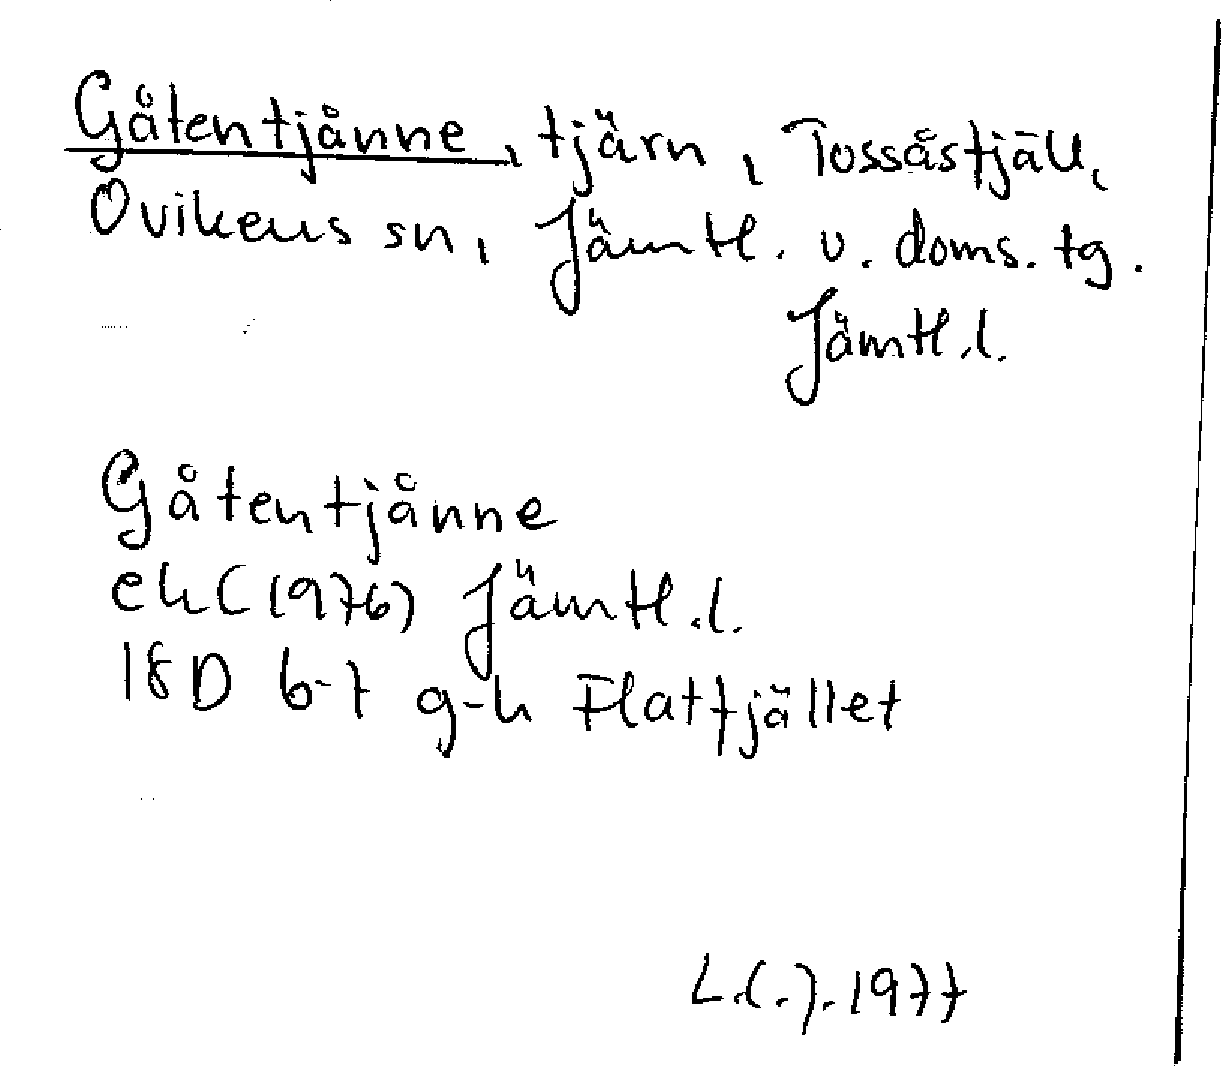 Gåtentjånne, tjärn, Tossåsfjäll,
Ovikens sn, Jämtl. v. doms. tg.
Jämtl.l.
Gåtentjånne
ekC(1976) Jämtl.l.
18D 6-7 g-h Flatfjället
L.C.J. 1977